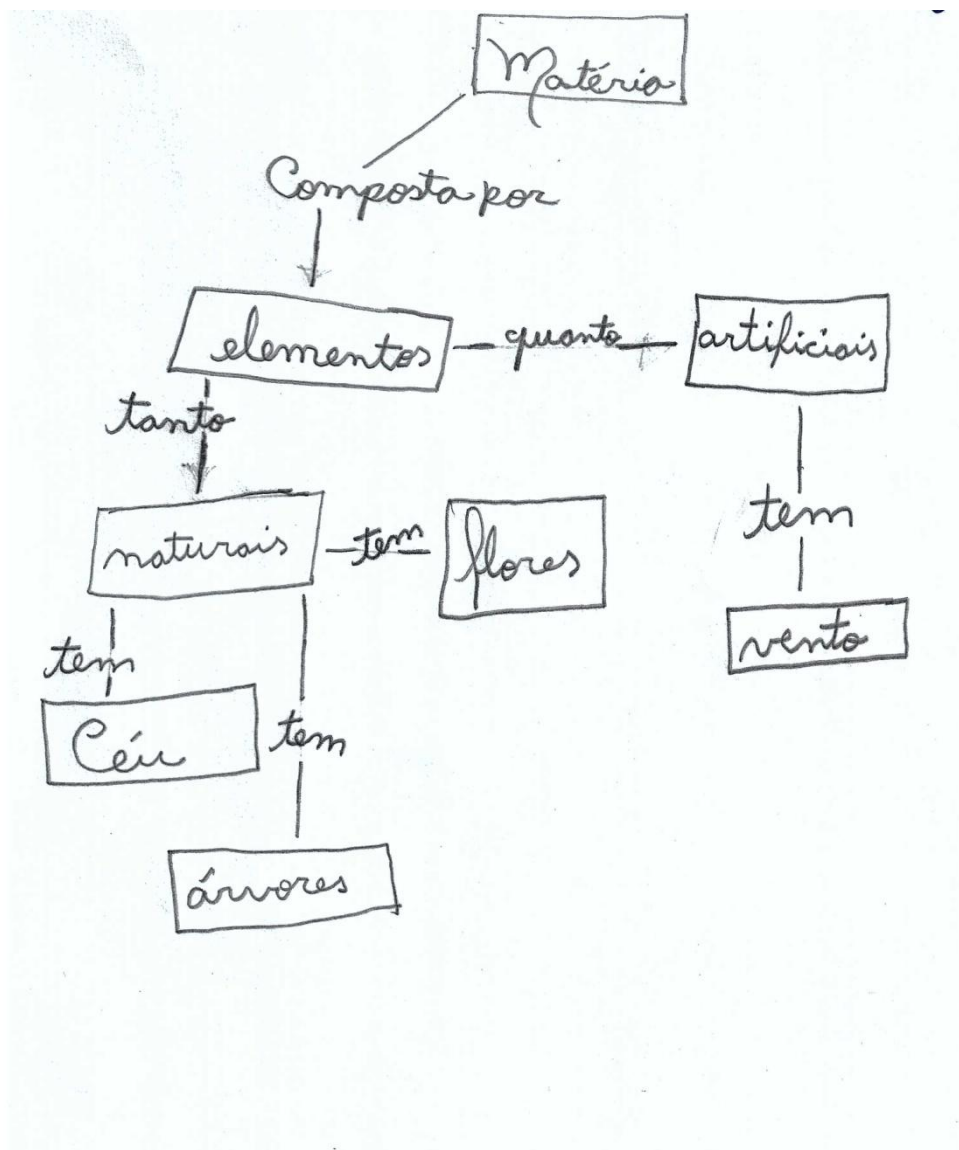 Matéria
Composta por
elementos quanto artificiais
tanto
naturais tem flores
tem
vento
tem
Céu
tem
árvores